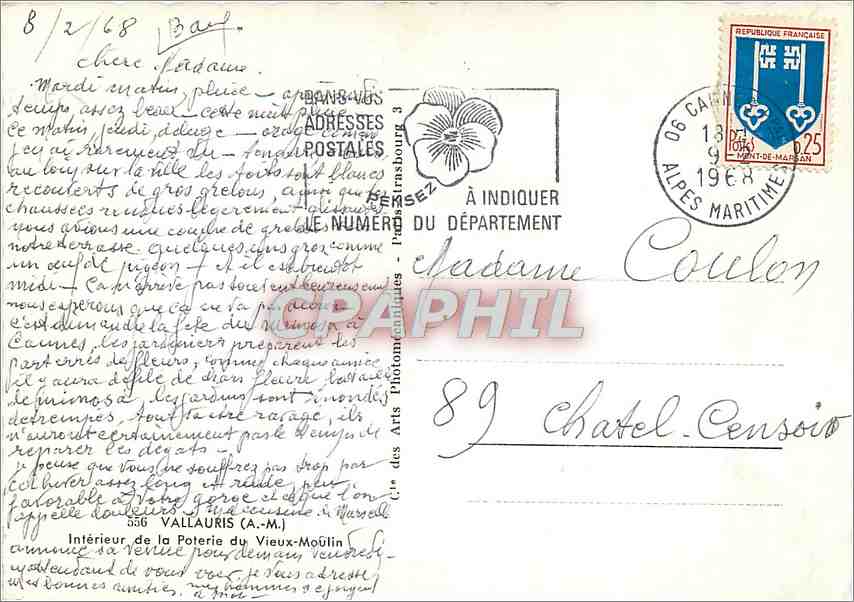 8/2/68
Chère Madame
Mardi matin, pluie - après midi
temps assez beau - cette nuit pluie
ce matin, jeudi, déluge - orage comme
j'en ai rarement vu - tonnerre
au loin sur la ville les toits sont blancs
recouverts de gros grelons, ainsi que les
chaussées rendues légèrement glissantes
nous avions une couche de grelons
notre terrasse. quelques uns gros comme
un œuf de pigeon - et il est bientôt
midi - Ça n'arrive pas souvent heureusement
nous espérons que ça ne va pas durer
c'est dimanche la fête du mimosa à
Cannes, les jardiniers préparent les
parterres de fleurs, comme chaque année
il y aura défilé de chars fleuris bataille
de mimosa, les jardins sont inondés
détrempés, tout va être ravagé, ils
n'auront certainement pas le temps de
réparer les dégats -
je pense que vous ne souffrez pas trop par
cet hiver assez long et rude, peu
favorable à votre gorge et à ce que l'on
appelle douleurs. Ma cousine de Marseille
annonce sa venue pour demain vendredi -
en attendant de vous voir, je vous adresse
mes bonnes amitiés.
556 VALLAURIS (A.-M.)
Intérieur de la Poterie du Vieux-Moulin
Cie des Arts Photomécaniques - Paris-Strasbourg 3
DANS VOS
ADRESSES
POSTALES
PENSEZ
À INDIQUER
LE NUMÉRO DU DÉPARTEMENT
06 CANNES
18H
9-2
1968
ALPES MARITIMES
REPUBLIQUE FRANÇAISE
Postes
0,25
MONT-DE-MARSAN
CPAPHIL
Madame Coulon
89 Chatel-Censoir